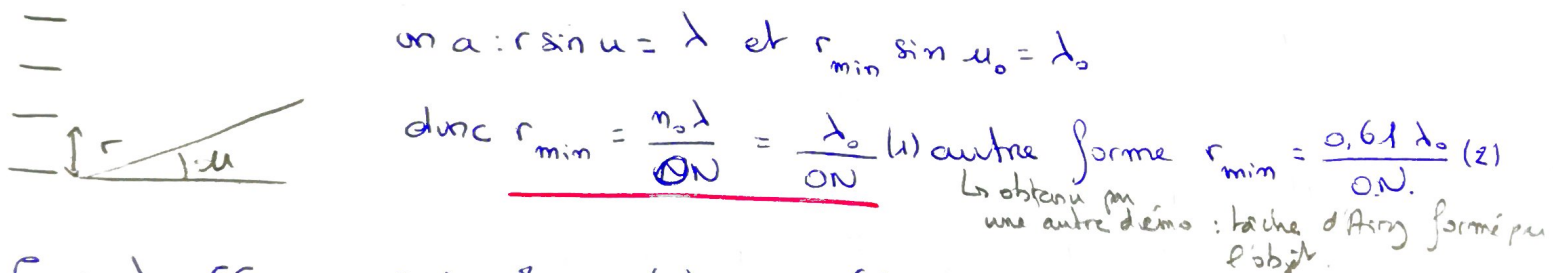 on a : r sin u = λ et r min sin u₀ = λ₀
r
u
donc r min = n₀λ / ON = λ₀ / ON (1) autre forme r min = 0,61 λ₀ / O.N. (2)
↳ obtenu par
une autre démo : tâche d'Airy formé par
l'objet